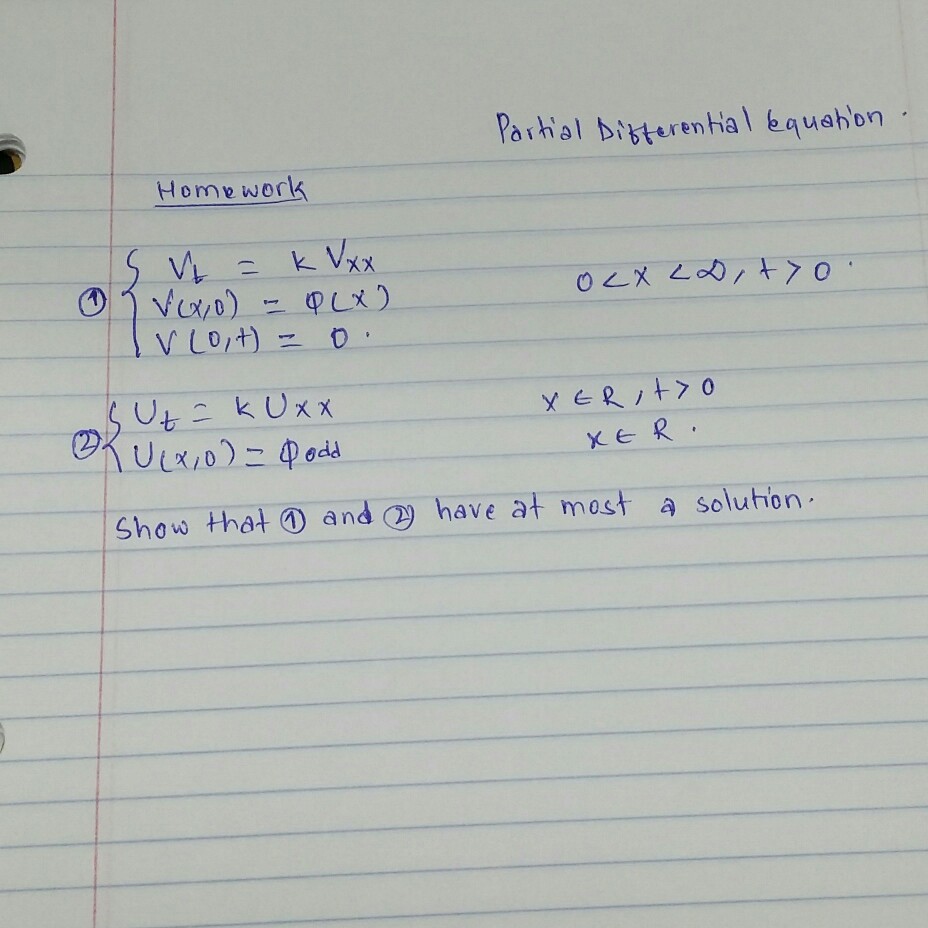 Partial Differential Equation.
Homework
① { V_t = k V_xx 0 < x < ∞, t > 0.
V(x,0) = φ(x)
V(0,t) = 0.
② { U_t = k U_xx x ∈ R, t > 0
U(x,0) = φ_odd x ∈ R.
Show that ① and ② have at most a solution.